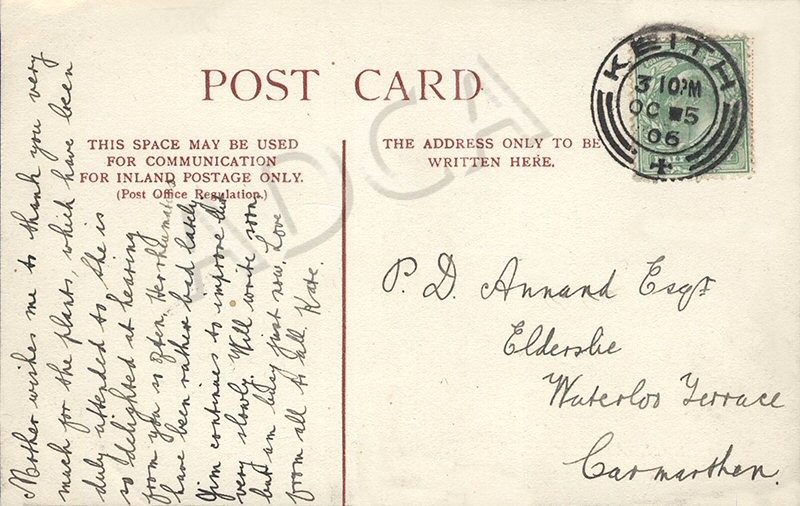 POST CARD
THIS SPACE MAY BE USED
FOR COMMUNICATION
FOR INLAND POSTAGE ONLY.
(Post Office Regulation.)
THE ADDRESS ONLY TO BE
WRITTEN HERE.
KEITH
3 10PM
OC 5
06
Mother wishes me to thank you very
much for the plants, which have been
duly attended to. She is
so delighted at hearing
from you so often. Her rheumatics
have been rather bad lately
Jim continues to improve but
very slowly. Will write soon
but am busy just now. Love
from all to all. Kate.
P. D. Annand Esqr
Elderslie
Waterloo Terrace
Carmarthen.
ADCA